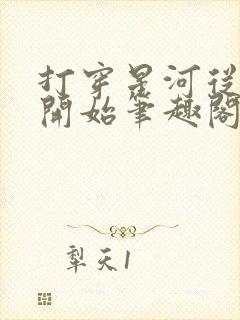 打穿星河從
開始筆趣閣
犁天1